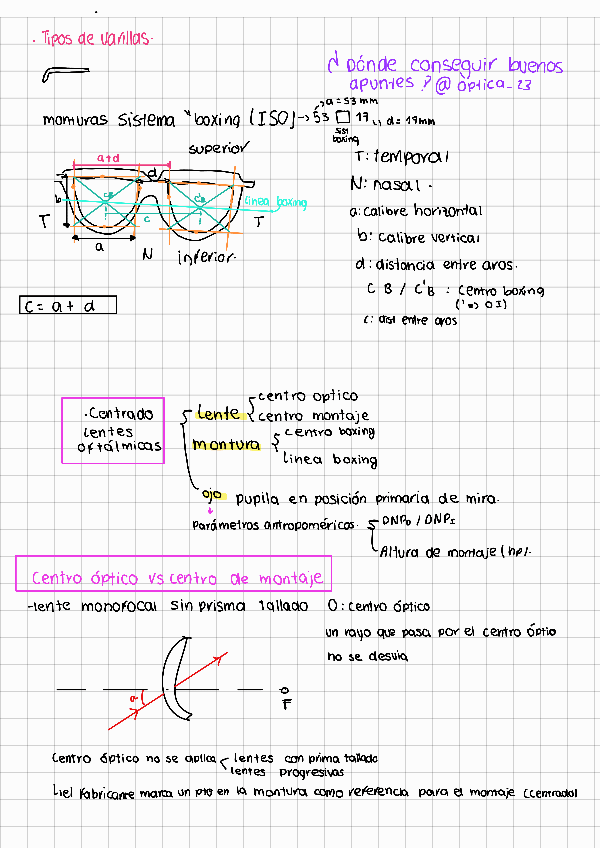 . Tipos de varillas.
¿Dónde conseguir buenos
apuntes? @ óptica_23
monturas sistema "boxing (ISO) → 53 □ 17
a = 53 mm
d = 17mm
sist
boxing
superior
a+d
d
b
CB
linea boxing
T
c
T
a
N
inferior.
T: temporal
N: nasal.
a: calibre horizontal
b: calibre vertical
d: distancia entre aros.
CB / C'B : centro boxing
(' => OI)
c: dist entre aros
C = a + d
.Centrado
lentes
oftálmicas
lente
centro optico
centro montaje
montura
centro boxing
linea boxing
ojo pupila en posición primaria de mira.
Parámetros antropoméricos.
DNPD / DNPI
Altura de montaje (hp).
Centro óptico vs centro de montaje
-lente monofocal sin prisma tallado
O: centro óptico
un rayo que pasa por el centro óptio
no se desvia
F
Centro óptico no se aplica
lentes con prima tallado
lentes progresivas
el fabricante marca un pto en la montura como referencia para el montaje (centrado)